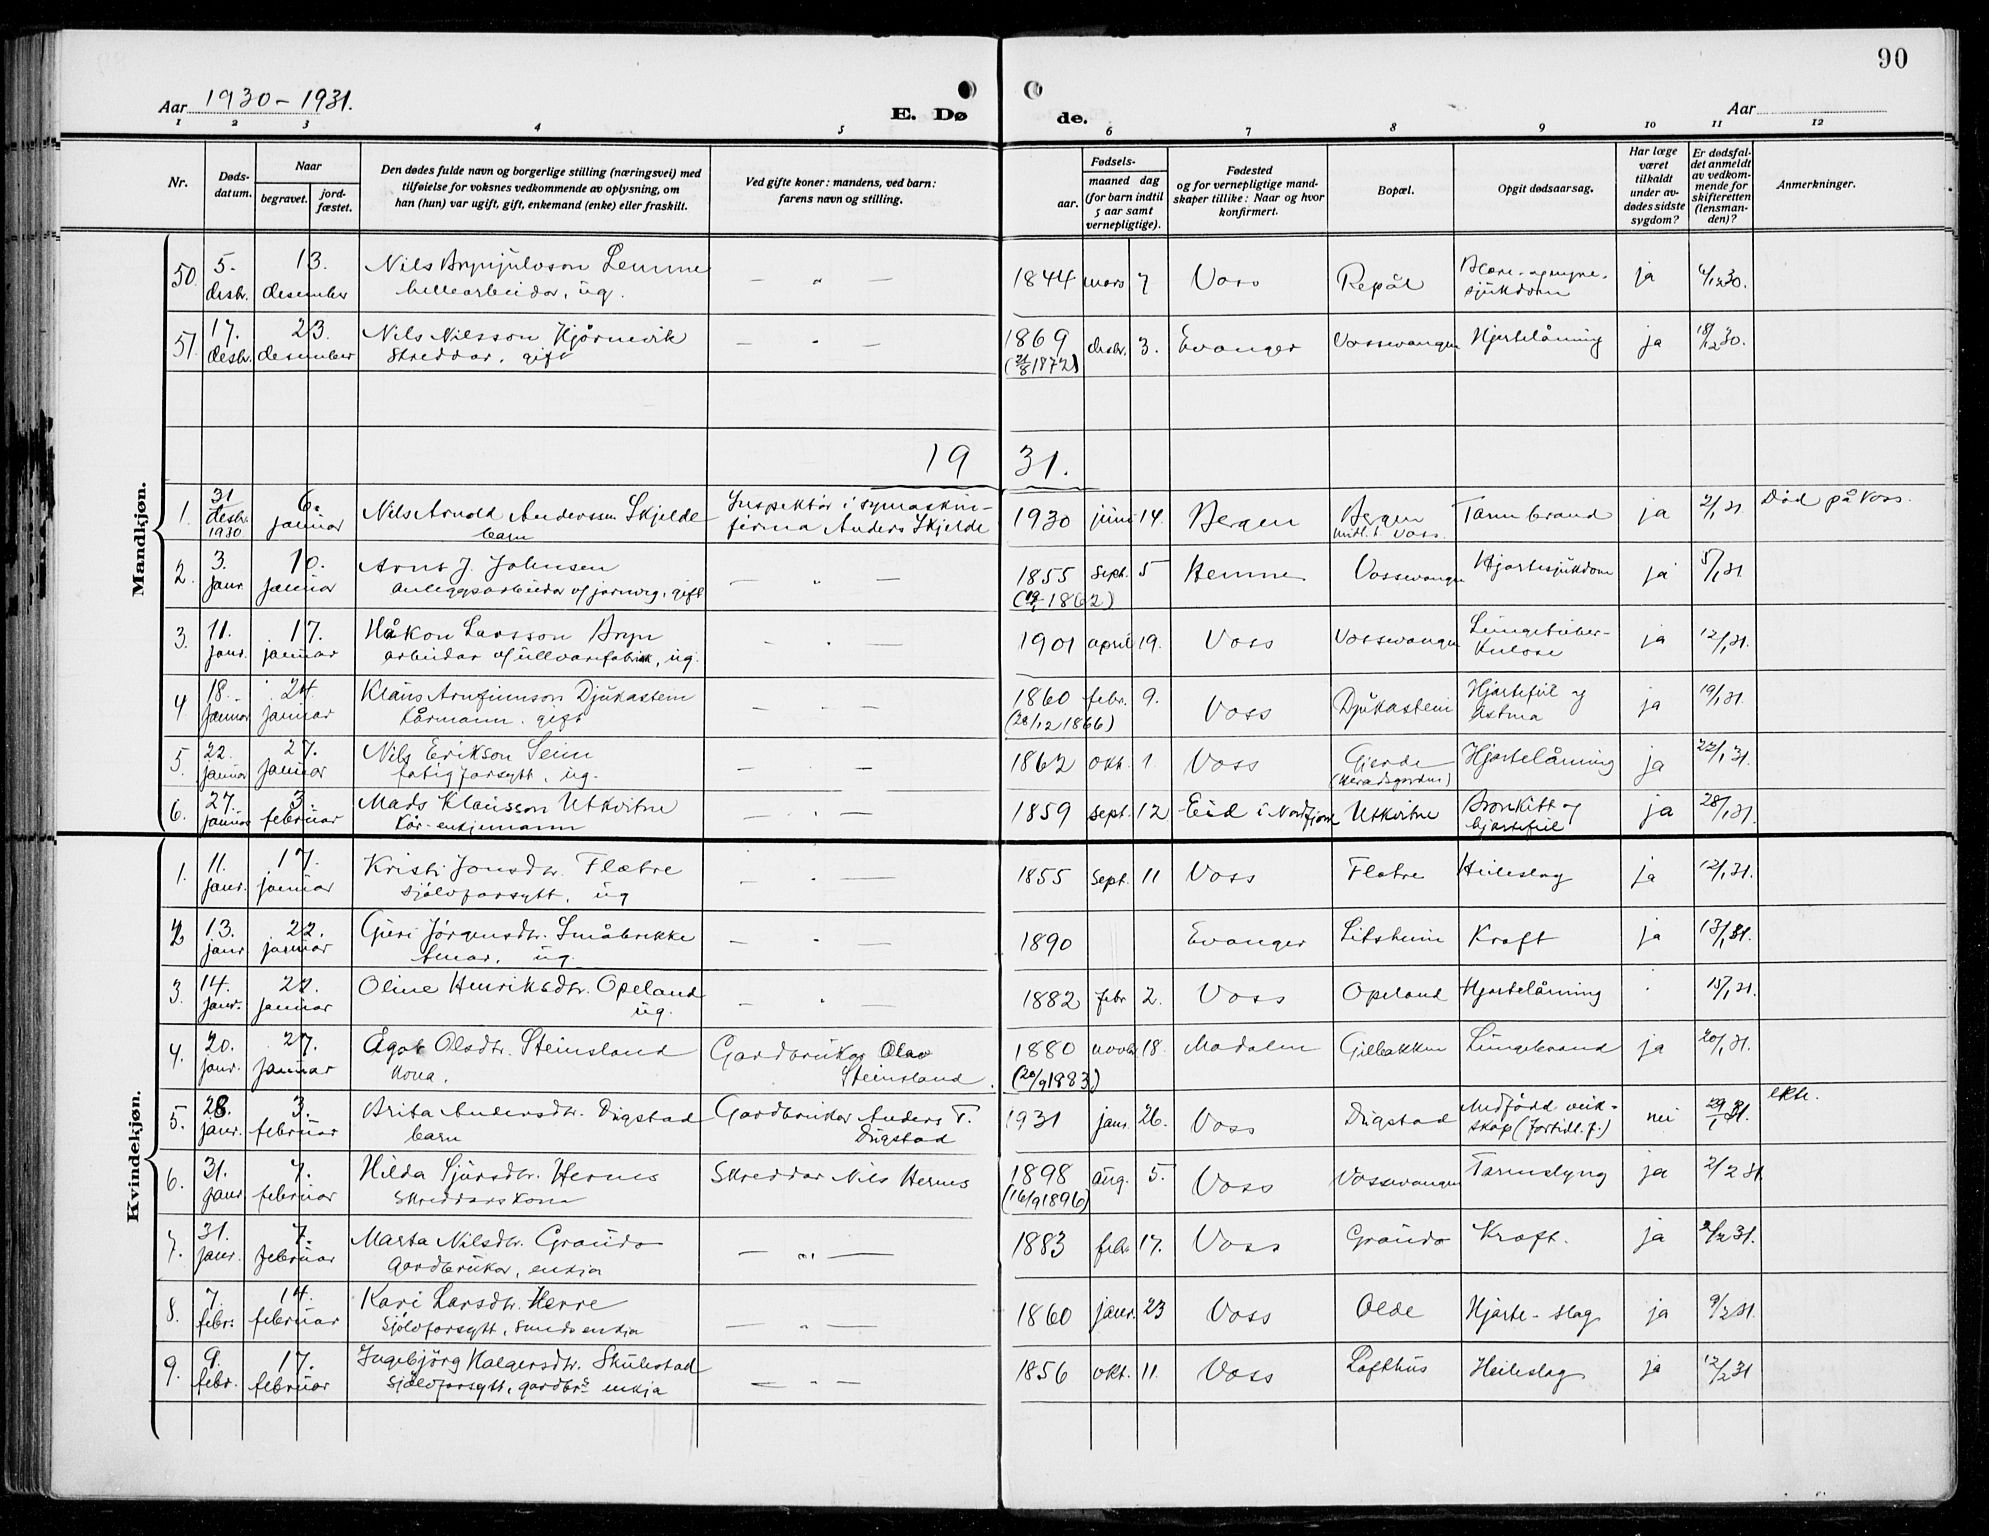 90
Aar 1930 - 1931.
E. Dø de.
Aar
1 2 3 4 5 6 7 8 9 10 11 12
Nr.
Døds-
datum.
Naar
begravet.
jord-
fæstet.
Den dødes fulde navn og borgerlige stilling (næringsvei) med
tilføielse for voksnes vedkommende av oplysning, om
han (hun) var ugift, gift, enkemand (enke) eller fraskilt.
Ved gifte koner: mandens, ved barn:
farens navn og stilling.
Fødsels-
aar.
maaned dag
(for barn indtil
5 aar samt
vernepligtige).
Fødested
og for vernepligtige mand-
skaper tillike: Naar og hvor
konfirmert.
Bopæl.
Opgit dødsaarsag.
Har læge
været
tilkaldt
under av-
dødes sidste
sygdom?
Er dødsfal-
det anmeldt
av vedkom-
mende for
skifteretten
(lensman-
den)?
Anmerkninger.
Mandkjøn.
50. 5. desbr. 13. desember Nils Brynjulvson Lemme
hellearbeidar, ug. — " — 1844 mars 7 Voss Repål Blære- og nyre-
sjukdom ja 6/12 30.
51. 17. desbr. 23. desember Nils Nilsson Hjørnevik
Skreddar, gift — " — 1869 desbr. 3. Evanger Vossevangen Hjartelåming ja 18/12 30.
19 31.
1. 31 desbr. 1930 6. januar Nils Arnold Anderssen Skjelde
barn Inspektør i symaskin-
firma Anders Skjelde 1930 juni 14. Bergen Bergen
midl. t. Voss. Tarmbrand ja 2/1 31 Død på Voss.
2. 3. janr. 10. januar Arnt J. Johnsen
anleggsarbeidar v/ jarnveg, gift — " — 1855 sept. 5 Hemne Vossevangen Hjartesjukdom ja 5/1 31.
3. 11. janr. 17. januar Håkon Larsson Bryn
arbeidar v/ ullvarefabrik, ug. — " — 1901 april 19. Voss Vossevangen Lungetuber-
kulose ja 12/1 31.
4 18. januar 24. januar Klaus Arnfinnson Djukastein
Kårmann. gift — " — 1860
(28/12 1866) febr. 9. Voss Djukastein Hjartefeil og
astma ja 19/1 31.
5. 22. januar 27. januar Nils Erikson Seim
fatigforsytt, ug. — " — 1862 okt. 1. Voss Gjerde
(Heradsgarden) Hjartelåming ja 22/1 31.
6. 27. januar 3. februar Mads Klausson Utkvitne
Kår-enkjemann — " — 1859 sept. 12 Eid i Nordfjord Utkvitne Bronkitt og
hjartefeil ja 28/1 31.
Kvindekjøn.
1. 11. janr. 17. januar Kristi Jonsdtr. Flatre
sjølvforsytt, ug — " — 1855 sept. 11 Voss Flatre Heileslag ja 12/1 31.
2 13. janr. 22. januar Guri Jørgensdtr. Småbrekke
ug. — " — 1890 Evanger Litsheim Kræft ja 13/1 31.
3. 14. janr. 22. januar Oline Henriksdtr. Opeland
ug. — " — 1882 febr 2. Voss Opeland Hjartelåming 15/1 31.
4. 20. janr. 27. januar Ågot Olsdtr. Steinsland
kona. Gardbrukar Olav
Steinsland. 1880
(20/9 1883) novbr 18. Modalen Gilbakken Lungebrand ja 20/1 31.
5. 28. janr. 3. februar Brita Andersdtr. Dugstad
barn Gardbrukar Anders T.
Dugstad 1931 janr. 26. Voss Dugstad Medfødd veik-
skap (fortidl. f.) nei 29/1 31. ekte.
6. 31. janr 7. februar Hilda Sjursdtr. Hernes
Skreddarskona Skreddar Nils Hernes 1898
(16/9 1896) aug. 5. Voss Vossevangen Tarmslyng ja 2/2 31
7. 31. janr. 7. februar Marta Nilsdtr. Graudo
Gardbrukar, enkja — " — 1883 febr 17. Voss Graudo Kræft. ja 2/2 31.
8. 7. febr. 14. februar Kari Larsdtr. Herre
sjølvforsytt, enkja — " — 1860 janr. 23 Voss Olde Hjarte-slag ja 9/2 31.
9. 9. febr. 17. februar Ingebjørg Halgersdtr. Skulestad
sjølvforsytt, gardbr.s enkja — " — 1856 okt. 11. Voss Lofthus Heileslag ja 12/2 31